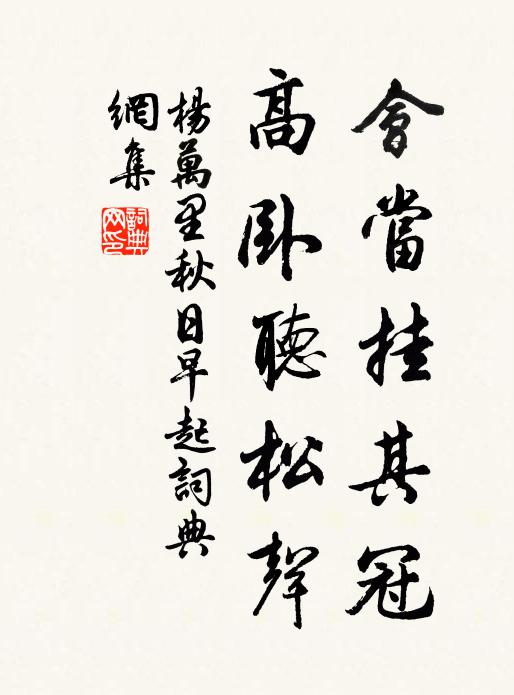 會當挂其冠
高卧聽松聲
楊萬里秋日早起詞典
網集
詞典网印